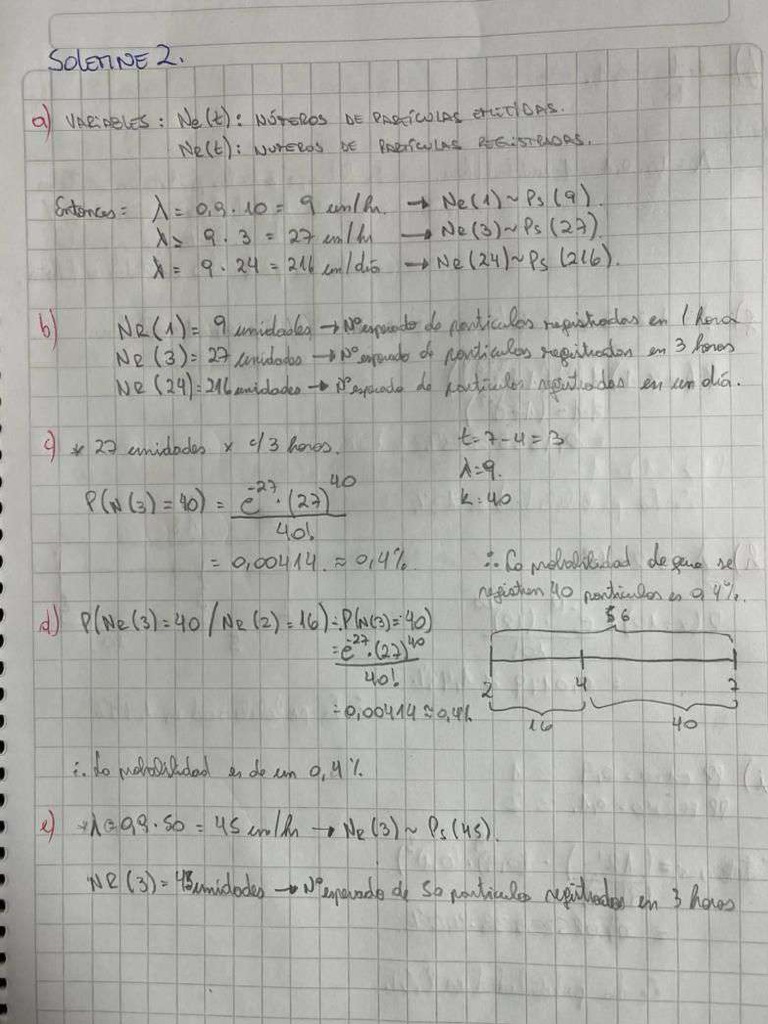 SOLEMNE 2.
a) VARIABLES : Ne(t): NÚMEROS DE PARTÍCULAS EMITIDAS.
Ne(t): NUMEROS DE PARTÍCULAS REGISTRADAS.
Entonces: λ = 0,9 · 10 = 9 un/hr. → Ne(1) ~ Ps(9).
λ = 9 · 3 = 27 un/hr → Ne(3) ~ Ps(27).
λ = 9 · 24 = 216 un/día → Ne(24) ~ Ps(216).
b) NR(1) = 9 unidades → N° esperado de partículas registradas en 1 hora
Ne(3) = 27 unidades → N° esperado de partículas registradas en 3 horas
Ne(24) = 216 unidades → N° esperado de partículas registradas en un día.
c) * 27 unidades x c/3 horas.
t = 7 - 4 = 3
λ = 9.
k : 40
P(N(3) = 40) = e^-27 · (27)^40
40!
= 0,00414. ≈ 0,4%.
∴ La probabilidad de que se
registren 40 partículas es 0,4%.
d) P(Ne(3) = 40 / Ne(2) = 16) = P(N(3) = 40)
= e^-27 · (27)^40
40!
= 0,00414 ≈ 0,4%
56
2 4 7
16 40
∴ La probabilidad es de un 0,4%
e) * λ = 0,9 · 50 = 45 un/hr → Ne(3) ~ Ps(45).
NR(3) = 45 unidades → N° esperado de 50 partículas registradas en 3 horas